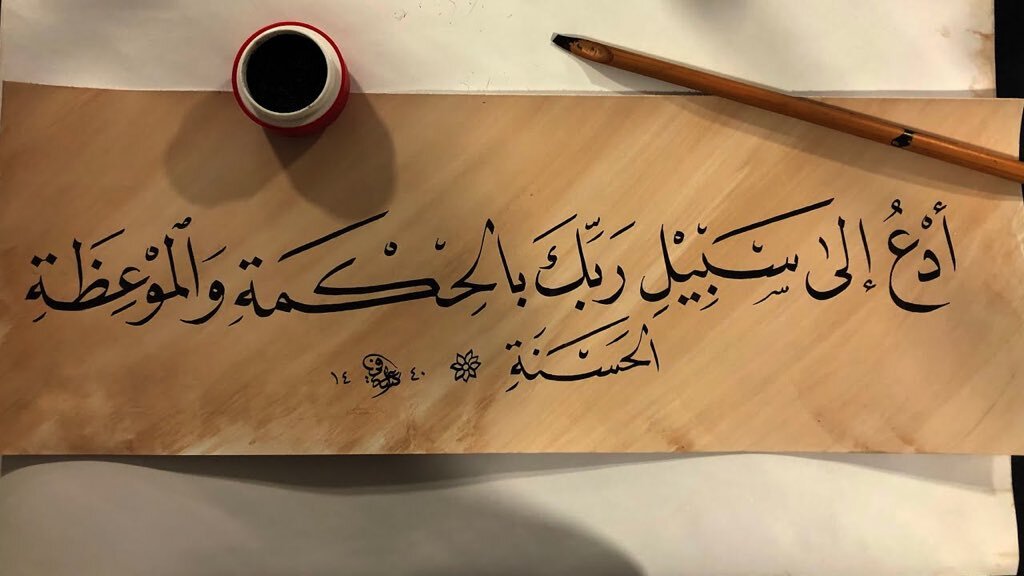 أُدْعُ إلى سَبِيْلِ رَبِّكَ بالحِكْمَةِ وَالْمَوْعِظَةِ
الحَسَنَةِ
٤٠ ١٤